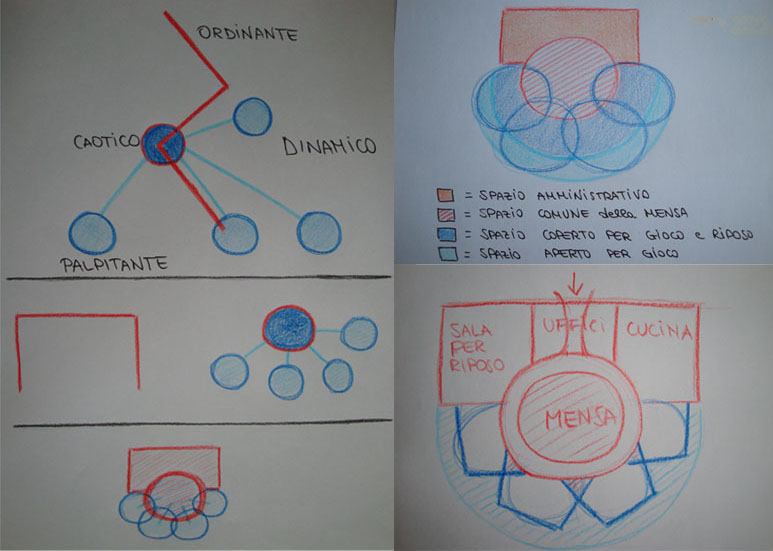 ORDINANTE
CAOTICO
DINAMICO
PALPITANTE
= SPAZIO AMMINISTRATIVO
= SPAZIO COMUNE della MENSA
= SPAZIO COPERTO PER GIOCO E RIPOSO
= SPAZIO APERTO PER GIOCO
SALA PER RIPOSO
UFFICI
CUCINA
MENSA